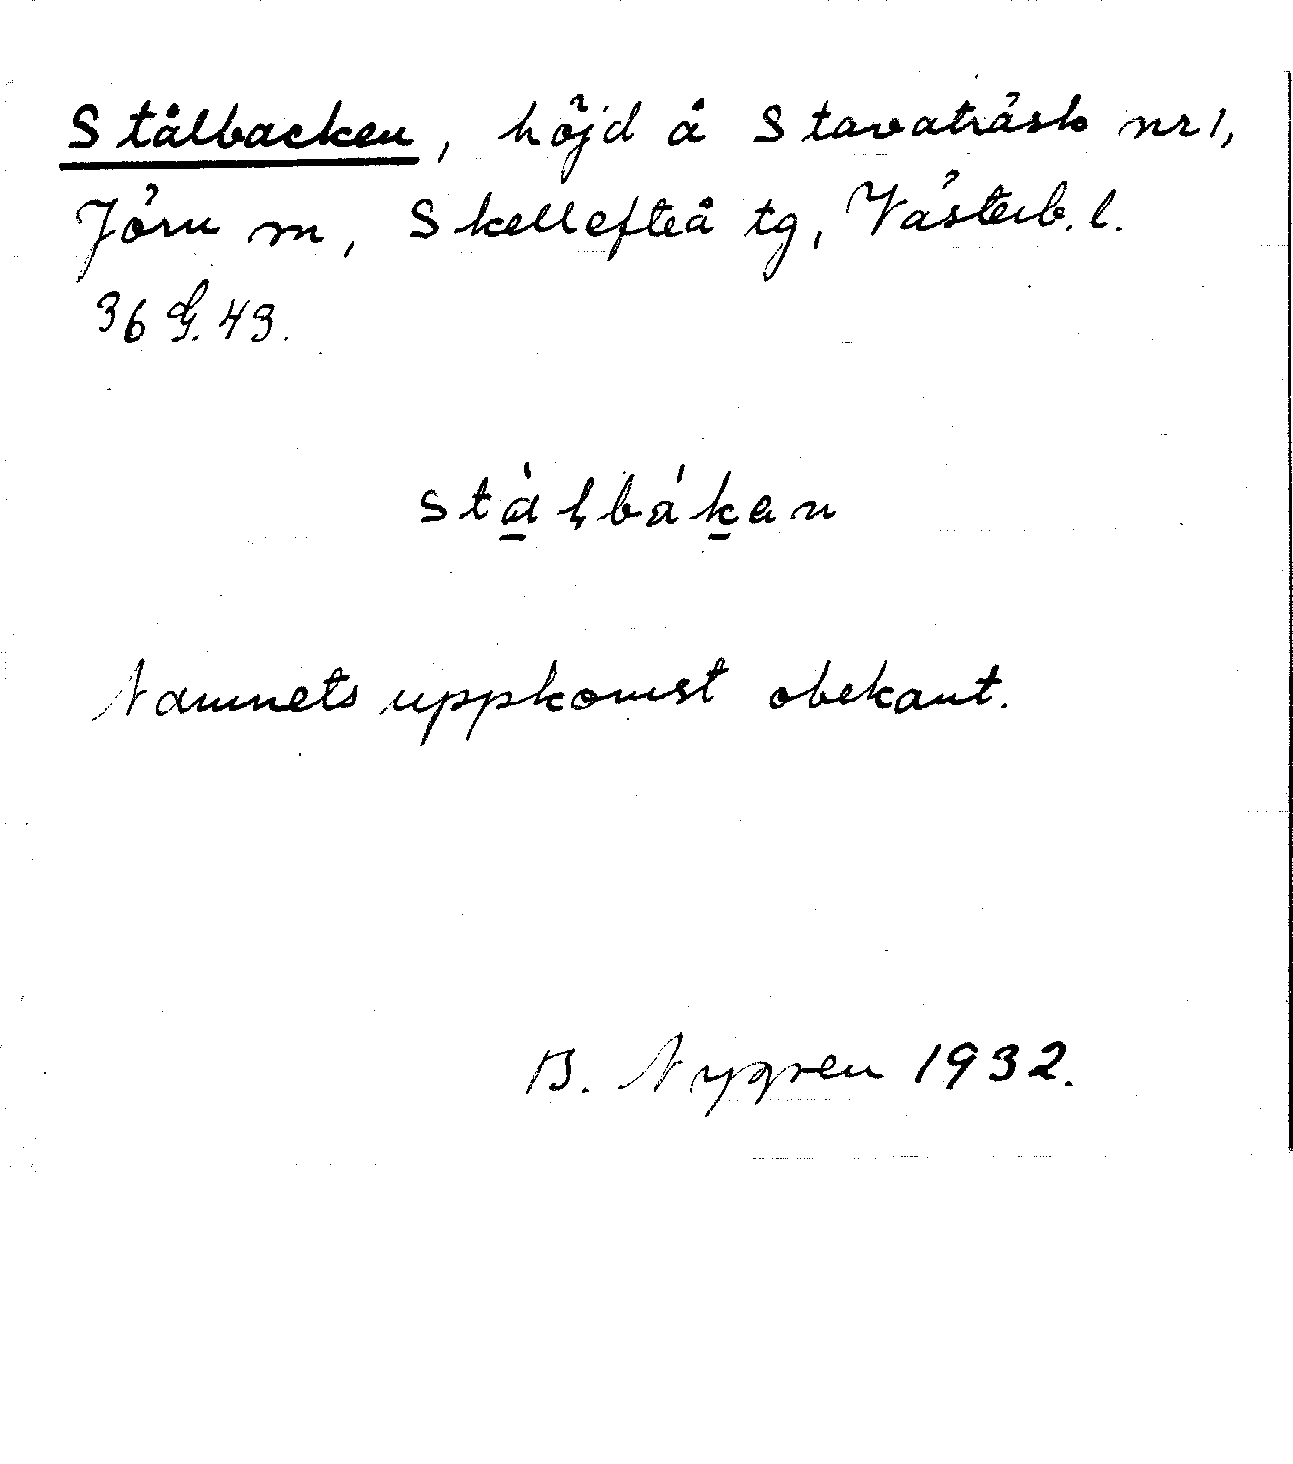 Stålbacken, höjd å Stavaträsk nr 1,
Jörn m, Skellefteå tg, Västerb. l.
36 G. 43.
Namnets uppkomst obekant.
B. Nygren 1932.